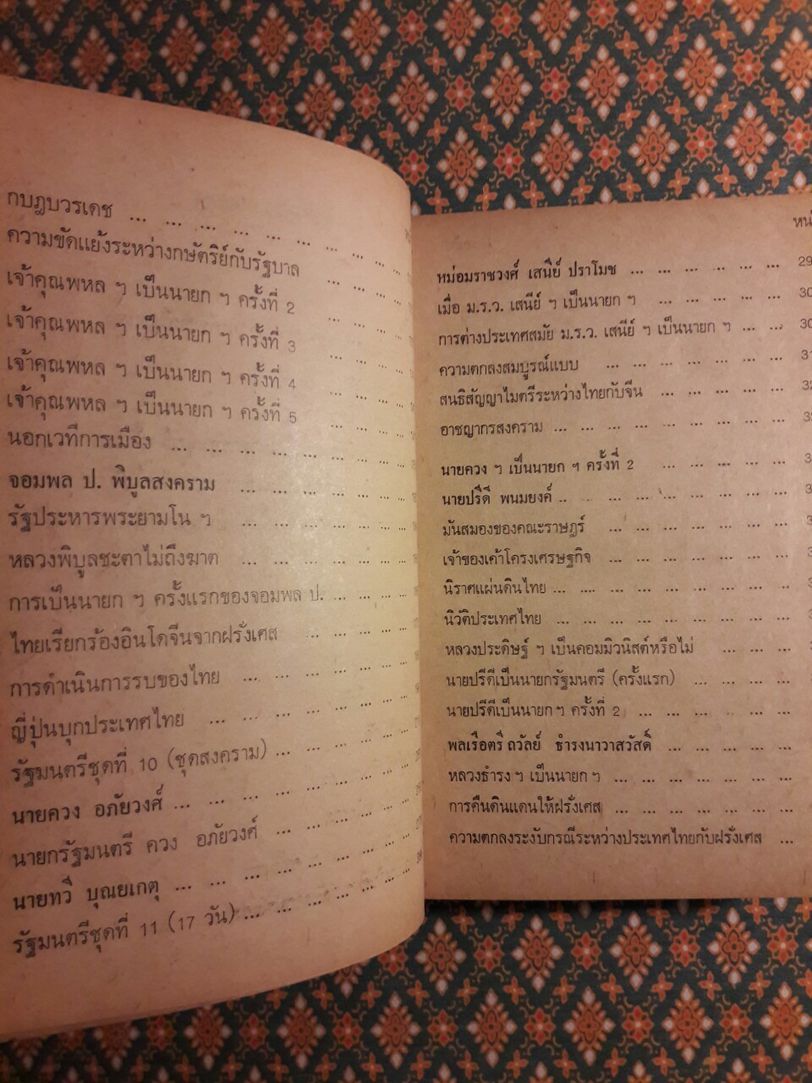 กบฎบวรเดช ... ... ... ... ... ... ... ...
ความขัดแย้งระหว่างกษัตริย์กับรัฐบาล ... ... ...
เจ้าคุณพหล ฯ เป็นนายก ฯ ครั้งที่ 2 ... ... ...
เจ้าคุณพหล ฯ เป็นนายก ฯ ครั้งที่ 3 ... ... ...
เจ้าคุณพหล ฯ เป็นนายก ฯ ครั้งที่ 4 ... ... ...
เจ้าคุณพหล ฯ เป็นนายก ฯ ครั้งที่ 5 ... ... ...
นอกเวทีการเมือง ... ... ... ... ... ... ...
จอมพล ป. พิบูลสงคราม ... ... ... ... ...
รัฐประหารพระยามโน ฯ ... ... ... ... ...
หลวงพิบูลชะตาไม่ถึงฆาต ... ... ... ... ...
การเป็นนายก ฯ ครั้งแรกของจอมพล ป. ... ... ... ...
ไทยเรียกร้องอินโดจีนจากฝรั่งเศส ... ... ... ...
การดำเนินการรบของไทย ... ... ... ... ...
ญี่ปุ่นบุกประเทศไทย ... ... ... ... ... ...
รัฐมนตรีชุดที่ 10 (ชุดสงคราม) ... ... ... ...
นายควง อภัยวงศ์ ... ... ... ... ... ... ...
นายกรัฐมนตรี ควง อภัยวงศ์ ... ... ... ...
นายทวี บุณยเกตุ ... ... ... ... ... ... ...
รัฐมนตรีชุดที่ 11 (17 วัน) ... ... ... ... ...
หม่อมราชวงศ์ เสนีย์ ปราโมช ... ... ... ... ... ...
เมื่อ ม.ร.ว. เสนีย์ ฯ เป็นนายก ฯ ... ... ... ... ...
การต่างประเทศสมัย ม.ร.ว. เสนีย์ ฯ เป็นนายก ฯ ... ...
ความตกลงสมบูรณ์แบบ ... ... ... ... ... ...
สนธิสัญญาไมตรีระหว่างไทยกับจีน ... ... ... ... ...
อาชญากรสงคราม ... ... ... ... ... ... ... ...
นายควง ฯ เป็นนายก ฯ ครั้งที่ 2 ... ... ... ... ...
นายปรีดี พนมยงค์ ... ... ... ... ... ... ...
มันสมองของคณะราษฎร์ ... ... ... ... ... ...
เจ้าของเค้าโครงเศรษฐกิจ ... ... ... ... ... ...
นิราศแผ่นดินไทย ... ... ... ... ... ... ... ...
นิวัติประเทศไทย ... ... ... ... ... ... ... ...
หลวงประดิษฐ์ ฯ เป็นคอมมิวนิสต์หรือไม่ ... ... ...
นายปรีดีเป็นนายกรัฐมนตรี (ครั้งแรก) ... ... ... ...
นายปรีดีเป็นนายกฯ ครั้งที่ 2 ... ... ... ... ...
พลเรือตรี ถวัลย์ ธำรงนาวาสวัสดิ์ ... ... ... ... ...
หลวงธำรง ฯ เป็นนายก ฯ ... ... ... ... ... ...
การคืนดินแดนให้ฝรั่งเศส ... ... ... ... ... ...
ความตกลงระงับกรณีระหว่างประเทศไทยกับฝรั่งเศส ...